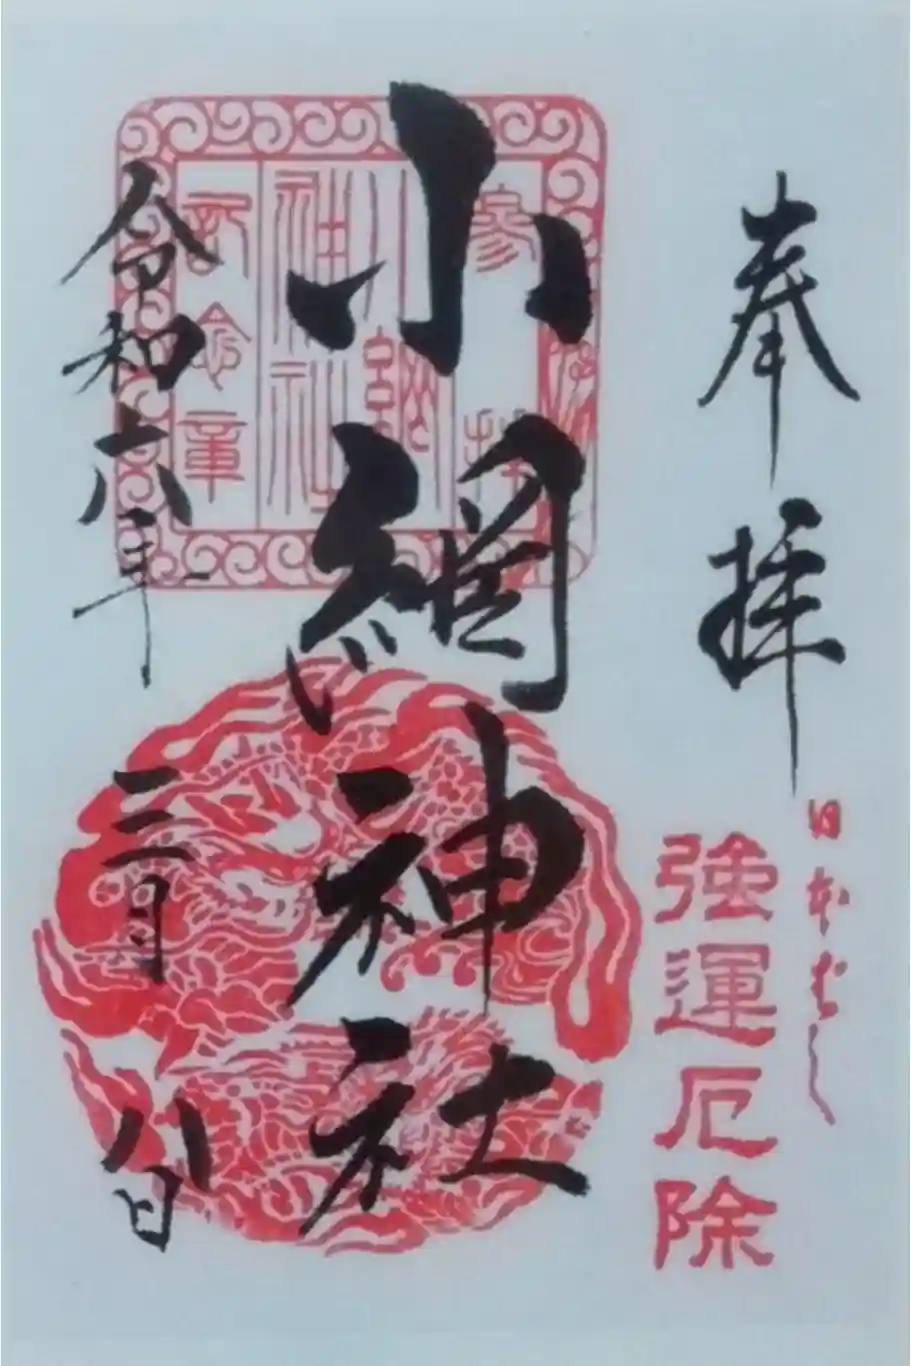 奉拝
日本ばし
強運厄除
小網神社
参拝
小網神社
記念章
令和六年
三月
八日